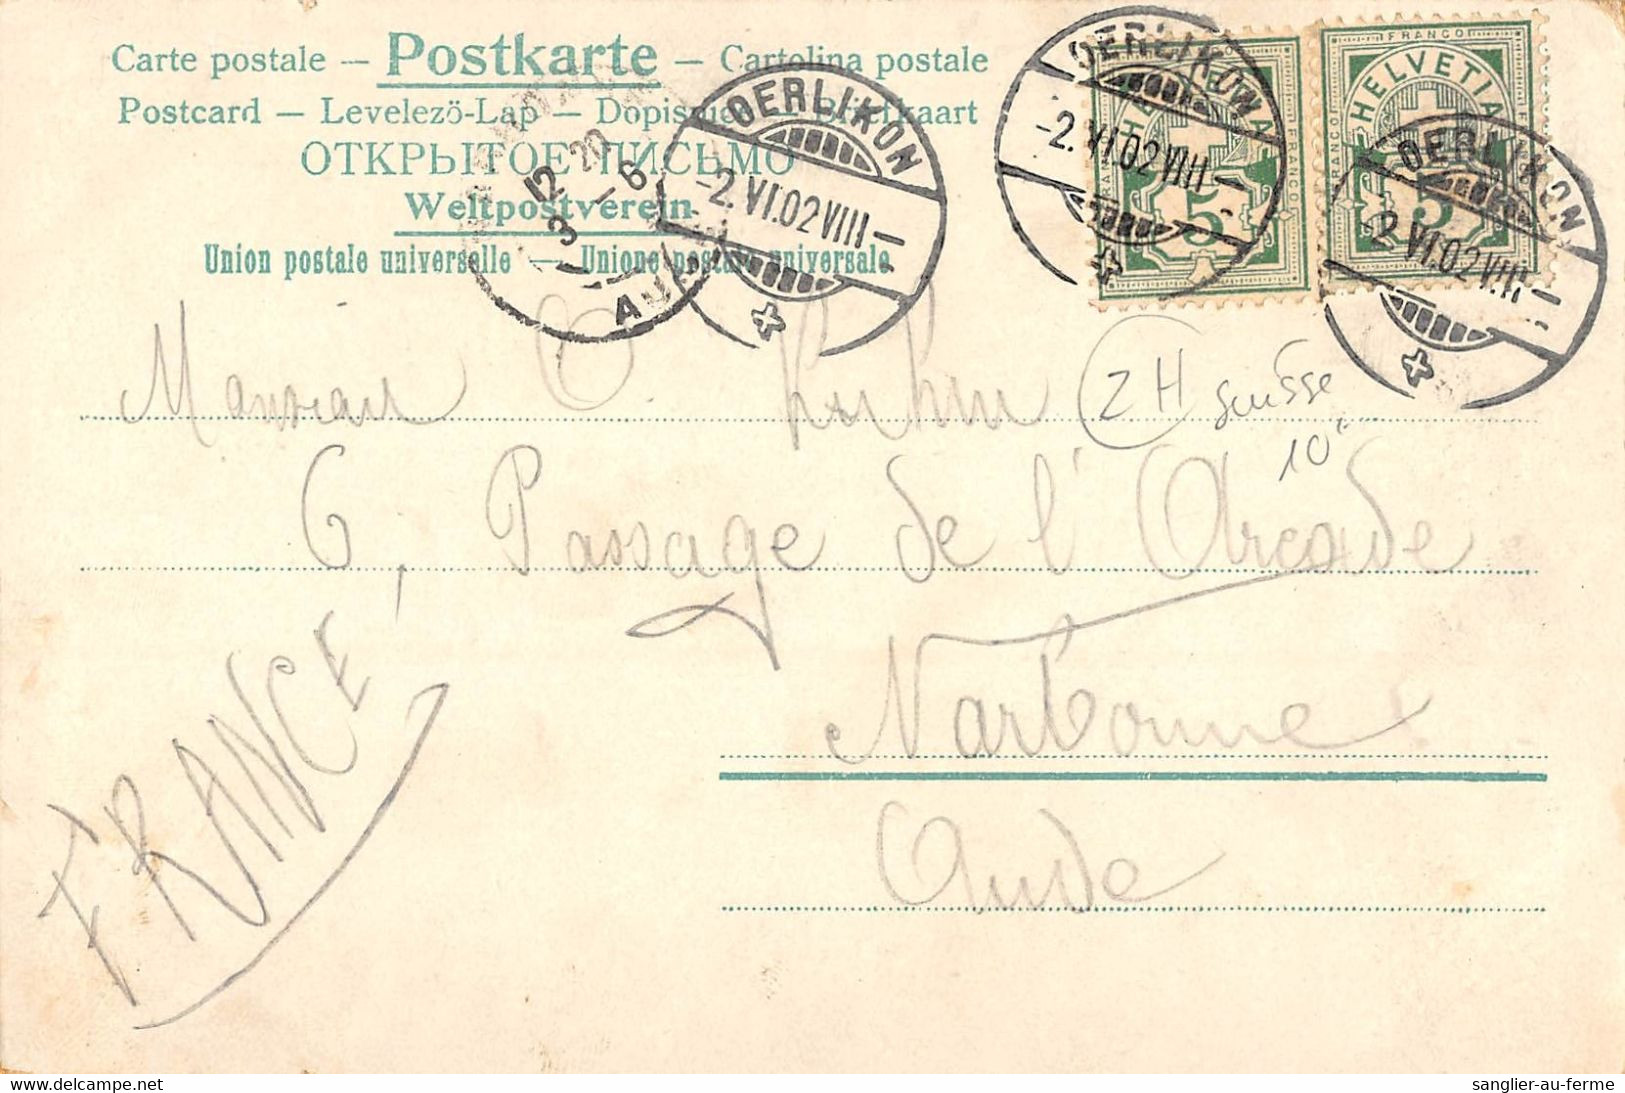 Carte postale — Postkarte — Cartolina postale
Postcard — Levelezö-Lap — Dopisnice — Briefkaart
ОТКРЫТОЕ ПИСЬМО
Weltpostverein
Union postale universelle — Unione postale universale
OERLIKON
-2.VI.02VIII-
OERLIKON
-2.VI.02VIII-
OERLIKON
-2.VI.02VIII-
HELVETIA
FRANCO
5
FRANCO
HELVETIA
FRANCO
5
12 20
3 -6
Monsieur O.
6, Passage de l'Arcade
Narbonne
Aude
FRANCE
2H
suisse
10
sanglier-au-ferme